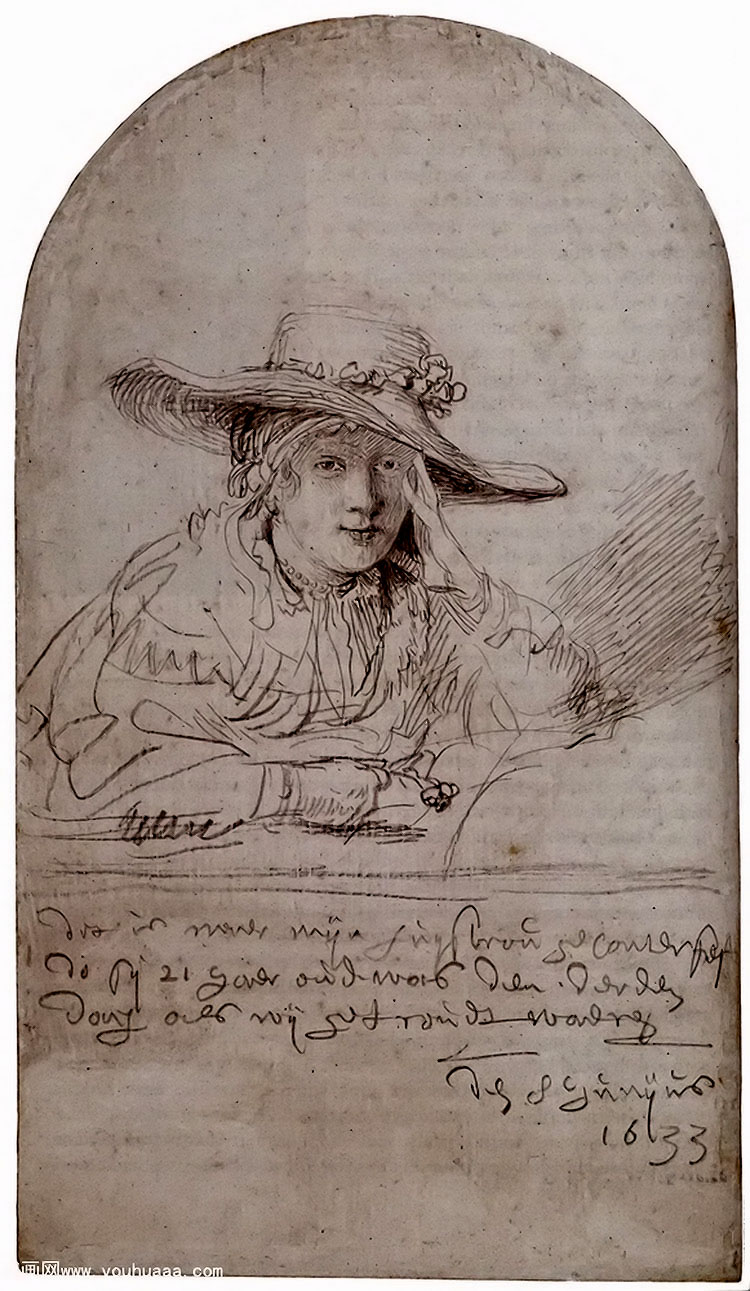 dit is naer mijn huysvrou geconterfeyt
do sij 21 jaer oud was den derden
dach als wij getroudt waeren
den 8 junijus
1633
画网www.youhuaaa.com